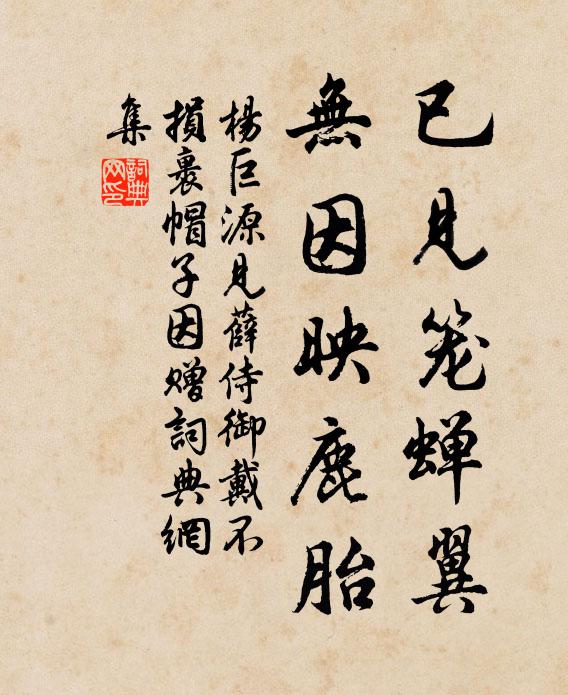 已见笼蝉翼
無因映鹿胎
楊巨源见薛侍御戴不
損裹帽子因赠詞典網
集
詞典
网印